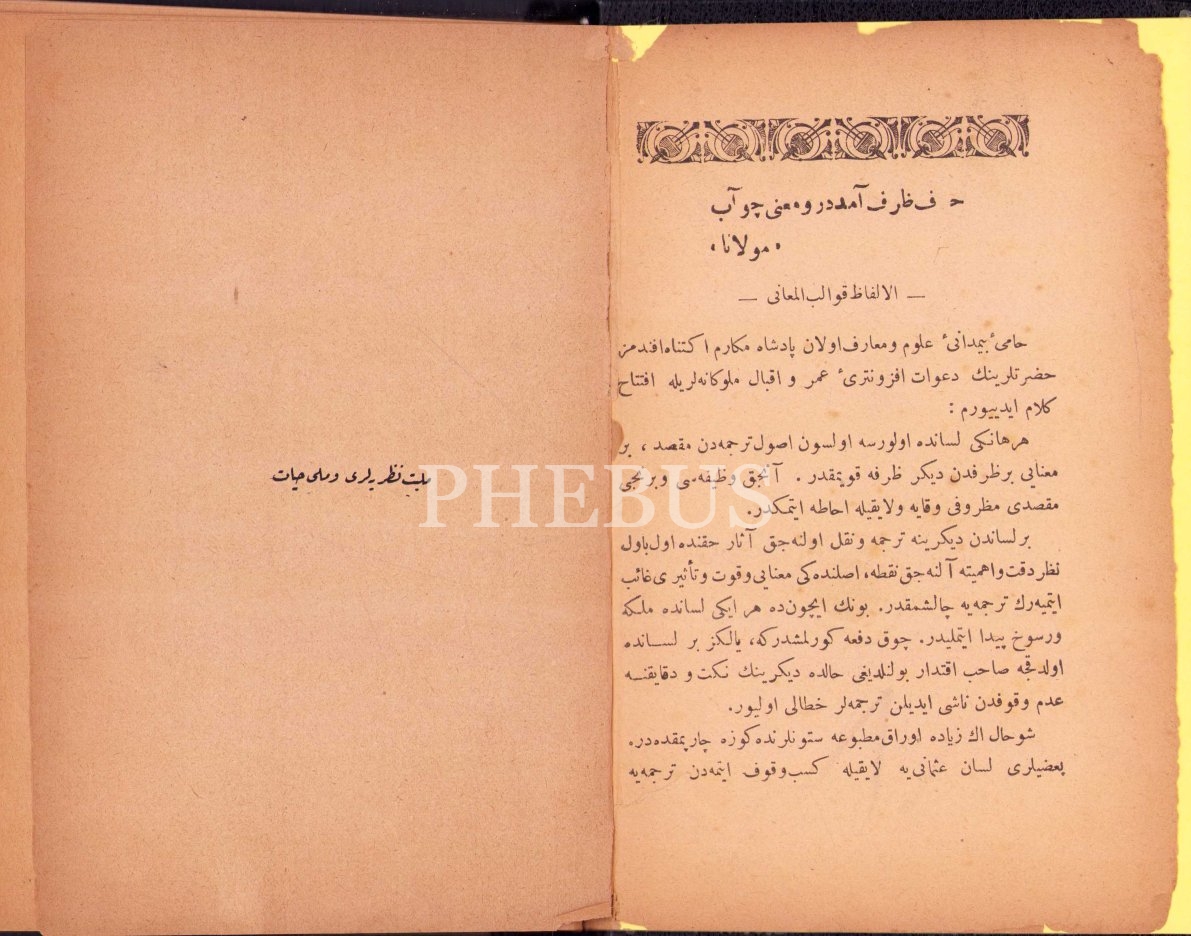 حرف ظرف آمد درو معنی چو آب
«مولانا»
— الالفاظ قوالب المعانی —
حامیٔ بیمدانیٔ علوم ومعارف اولان پادشاه مکارم اکتناه افندمز
حضرتلرینك دعوات افزونترئ عمر و اقبال ملوکانه‌لریله افتتاح
کلام ایدییورم :
هرهانکی لسانده اولورسه اولسون اصول ترجمه‌دن مقصد ، بر
معنایی برظرفدن دیکر ظرفه قویمقدر . آنجق وظیفه‌سی وبرنجی
مقصدی مظروفی وقایه ولایقیله احاطه ایتمکدر.
برلساندن دیکرینه ترجمه ونقل اولنه‌جق آثار حقنده اول‌باول
نظر دقت واهمیته آلنه‌جق نقطه، اصلنده‌کی معنایی وقوت وتأثیری غائب
ایتمیه‌رك ترجمه‌یه چالشمقدر. بونك ایچون‌ده هر ایکی لسانده ملکه
ورسوخ پیدا ایتملیدر. چوق دفعه کورلمشدرکه، یالکز بر لسانده
اولدقجه صاحب اقتدار بولندیغی حالده دیکرینك نکت و دقایقنه
عدم وقوفدن ناشی ایدیلن ترجمه‌لر خطالی اولیور.
شوحال اك زیاده اوراق مطبوعه ستونلرنده کوزه چارپمقده‌در.
بعضیلری لسان عثمانی‌یه لایقیله کسب وقوف ایتمه‌دن ترجمه‌یه
ملیت نظریه‌لری وملی حیات
PHEBUS